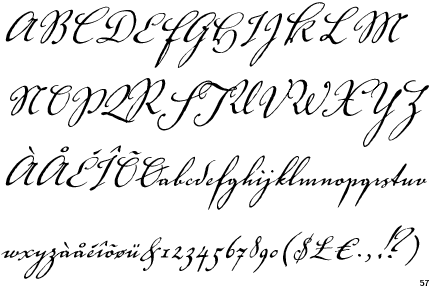 ABCDEFGHIJKLM
NOPQRSTUVWXYZ
ÀÅÉÎÕŒabcdefghijklmnopqrstuv
wxyzàåéîõøü&1234567890($£€.,!?)
57